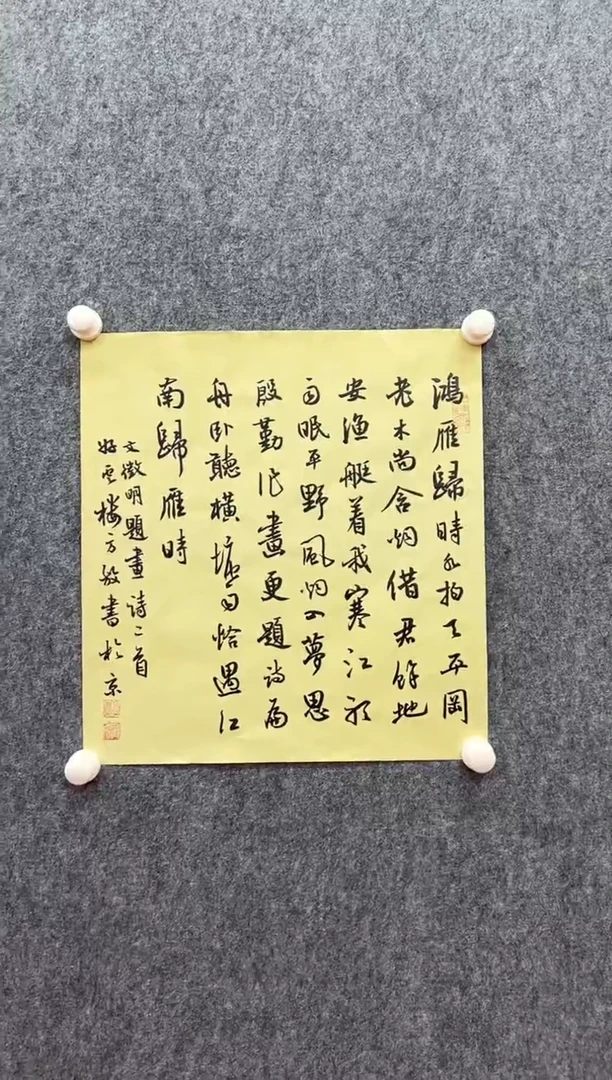 鴻雁歸時水拍天平岡
老木尚含烟借君餘地
安漁艇着我寒江聽
雨眠平野風烟入夢思
殷勤作畫更題詩扁
舟卧聽橫塘雨恰遇江
南歸雁時
文徵明題畫詩二首
好雲樓方毅書於京